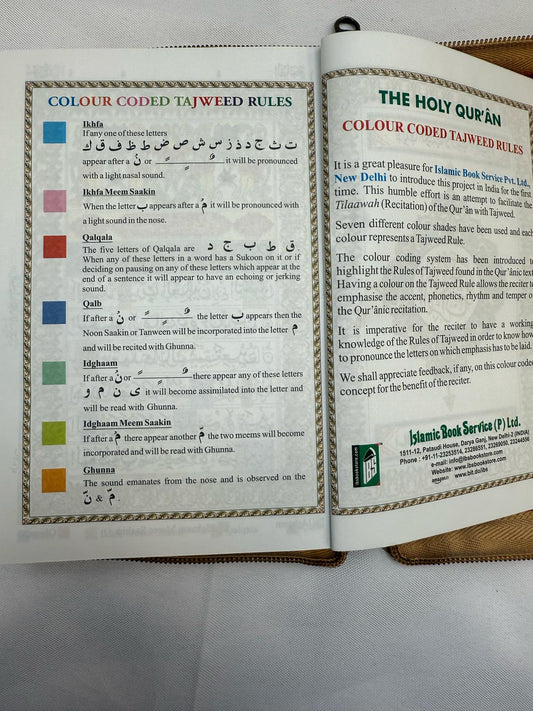 COLOUR CODED TAJWEED RULES
Ikhfa
If any one of these letters
ت ث ج د ذ ز س ش ص ض ط ظ ف ق ك
appear after a نْ or ـًـ ـٍـ ـٌـ it will be pronounced
with a light nasal sound.
Ikhfa Meem Saakin
When the letter ب appears after a مْ it will be pronounced with
a light sound in the nose.
Qalqala
The five letters of Qalqala are ق ط ب ج د
When any of these letters in a word has a Sukoon on it or if
deciding on pausing on any of these letters which appear at the
end of a sentence it will appear to have an echoing or jerking
sound.
Qalb
If after a نْ or ـًـ ـٍـ ـٌـ the letter ب appears then the
Noon Saakin or Tanween will be incorporated into the letter م
and will be recited with Ghunna.
Idghaam
If after a نْ or ـًـ ـٍـ ـٌـ there appear any of these letters
ى ن م و it will become assimilated into the letter and
will be read with Ghunna.
Idghaam Meem Saakin
If after a مْ there appear another مّ the two meems will become
incorporated and will be read with Ghunna.
Ghunna
The sound emanates from the nose and is observed on the
نّ & مّ .
THE HOLY QUR'ÂN
COLOUR CODED TAJWEED RULES
It is a great pleasure for Islamic Book Service Pvt. Ltd.,
New Delhi to introduce this project in India for the first
time. This humble effort is an attempt to facilitate the
Tilaawah (Recitation) of the Qur'ân with Tajweed.
Seven different colour shades have been used and each
colour represents a Tajweed Rule.
The colour coding system has been introduced to
highlight the Rules of Tajweed found in the Qur'ânic text.
Having a colour on the Tajweed Rule allows the reciter to
emphasise the accent, phonetics, rhythm and temper of
the Qur'ânic recitation.
It is imperative for the reciter to have a working
knowledge of the Rules of Tajweed in order to know how
to pronounce the letters on which emphasis has to be laid.
We shall appreciate feedback, if any, on this colour coded
concept for the benefit of the reciter.
IBS
ibsbookstore.com
Islamic Book Service (P) Ltd.
1511-12, Pataudi House, Darya Ganj, New Delhi-2 (INDIA)
Phone : +91-11-23253514, 23286551, 23269050, 23244556
e-mail: info@ibsbookstore.com
Website: www.ibsbookstore.com
amazon www.bit.do/ibs